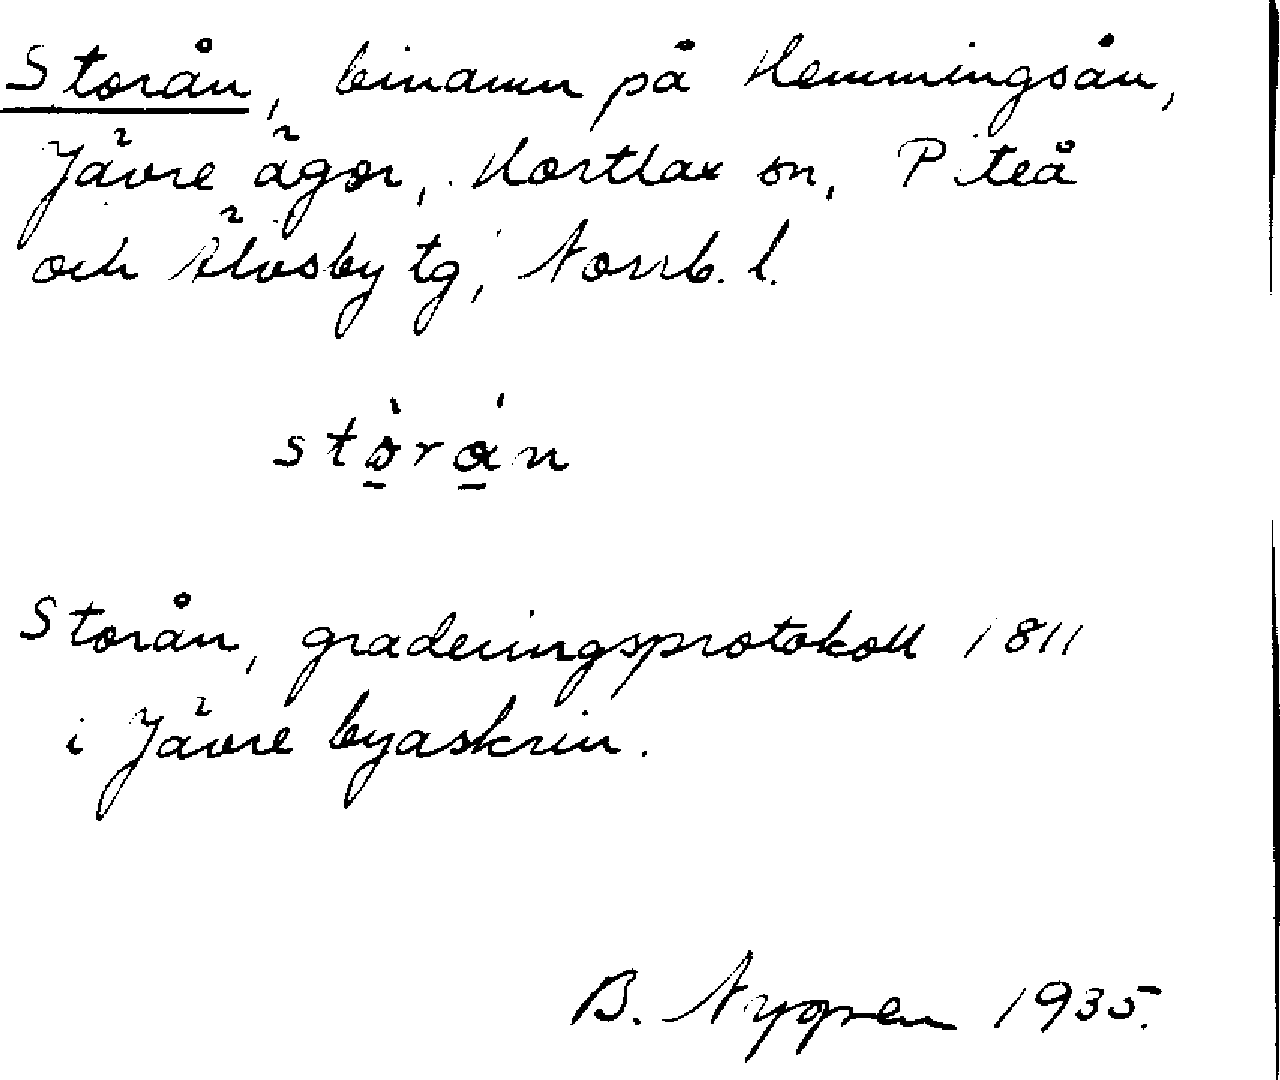 Storån, binamn på Hemmingsån,
Jävre ägor, Hortlax sn, Piteå
och Älvsby tg, Norrb. l.
stò̱rá̱n
Storån, graderingsprotokoll 1811
i Jävre byaskrin.
B. Nygren 1935.